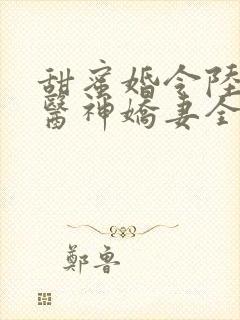 甜蜜婚令陸
醫神嬌妻全
鄭魯